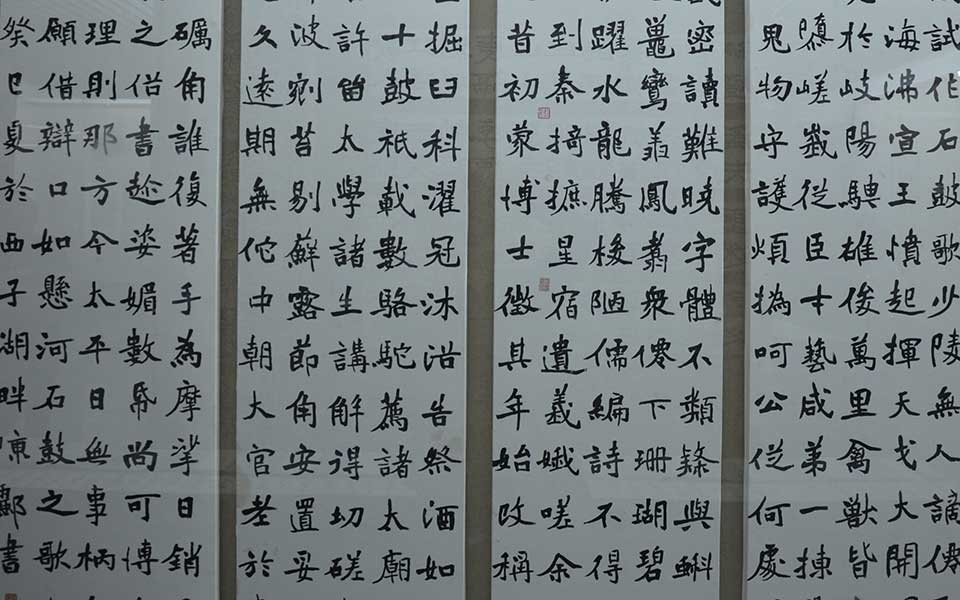 試作石鼓歌少陵無人謫僊
海沸宣王憤起揮天戈大開
於岐陽騁雄俊萬里禽獸皆
隳嵯峩從臣才藝咸第一揀
鬼物守護煩撝呵公從何處
密讀難曉字體不類隸與蝌
鼉鸞翔鳳翥衆僊下珊瑚碧
躍水龍騰梭陋儒編詩不得
到秦掎摭星宿遺羲娥嗟余
昔初蒙博士徵其年始改稱
掘臼科濯冠沐浴告祭酒如
十鼓祇載數駱駝薦諸太廟
許留太學諸生講解得切磋
波剜苔剔蘚露節角安置妥
久遠期無佗中朝大官老於
礪角誰復著手為摩挲日銷
之俗書趁姿媚數帋尚可博
理則那方今太平日無事柄
願借辯口如懸河石鼓之歌
癸巳夏於西子湖畔書